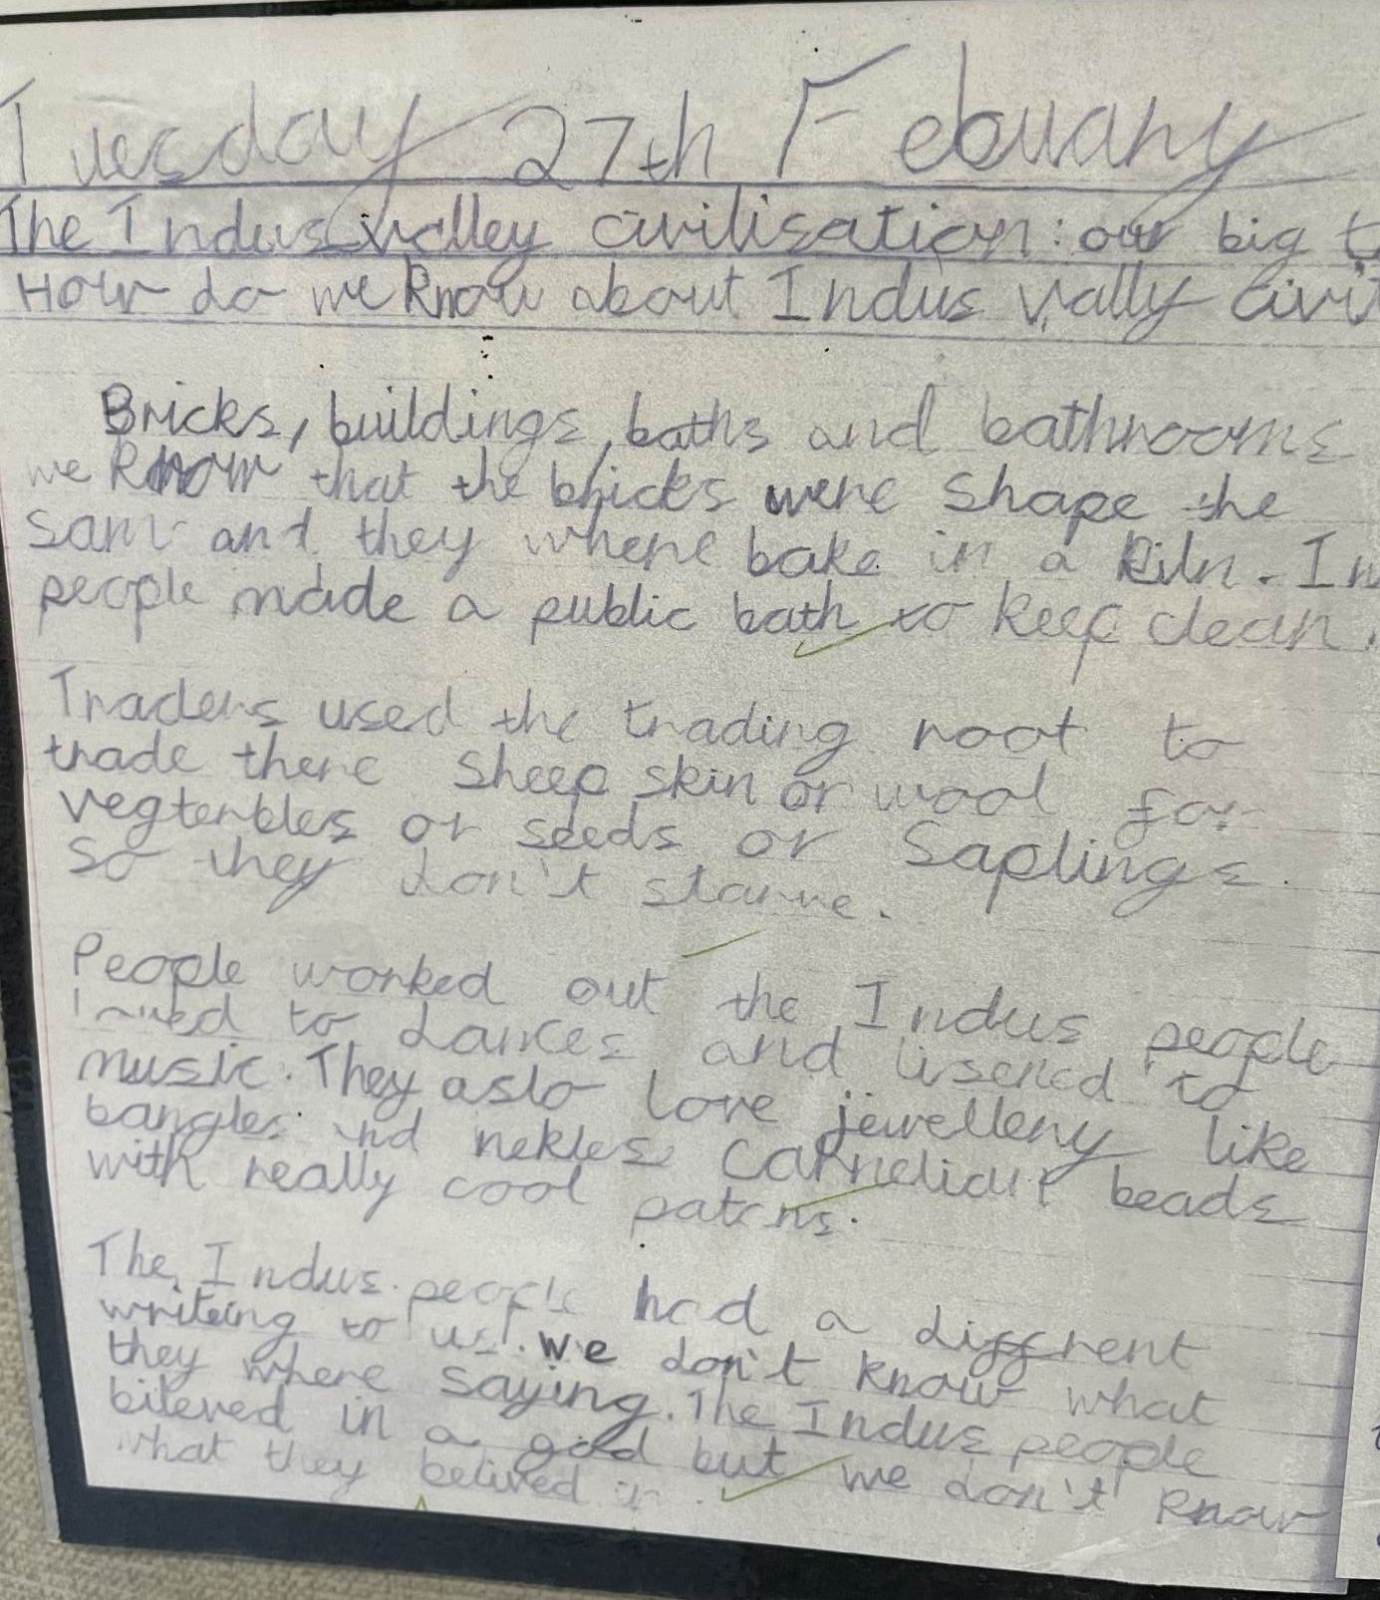 Tuesday 27th Febuary
The Indus valley civilisation: our big
How do we know about Indus vally civi
Bricks, buildings, baths and bathrooms
we know that the bricks were shape the
same and they where bake in a kiln. In
people made a public bath to keep clean.
Traders used the trading root to
trade there sheep skin or wool for
vegterbles or seeds or saplings
so they don't starve.
People worked out the Indus people
loved to dances and lisened to
music. They aslo love jewellery like
bangles and nekles Carnelian beads
with really cool paterns.
The Indus people had a diffrent
writeing to us. we don't know what
they where saying. The Indus people
bileved in a god but we don't know
what they belived in.